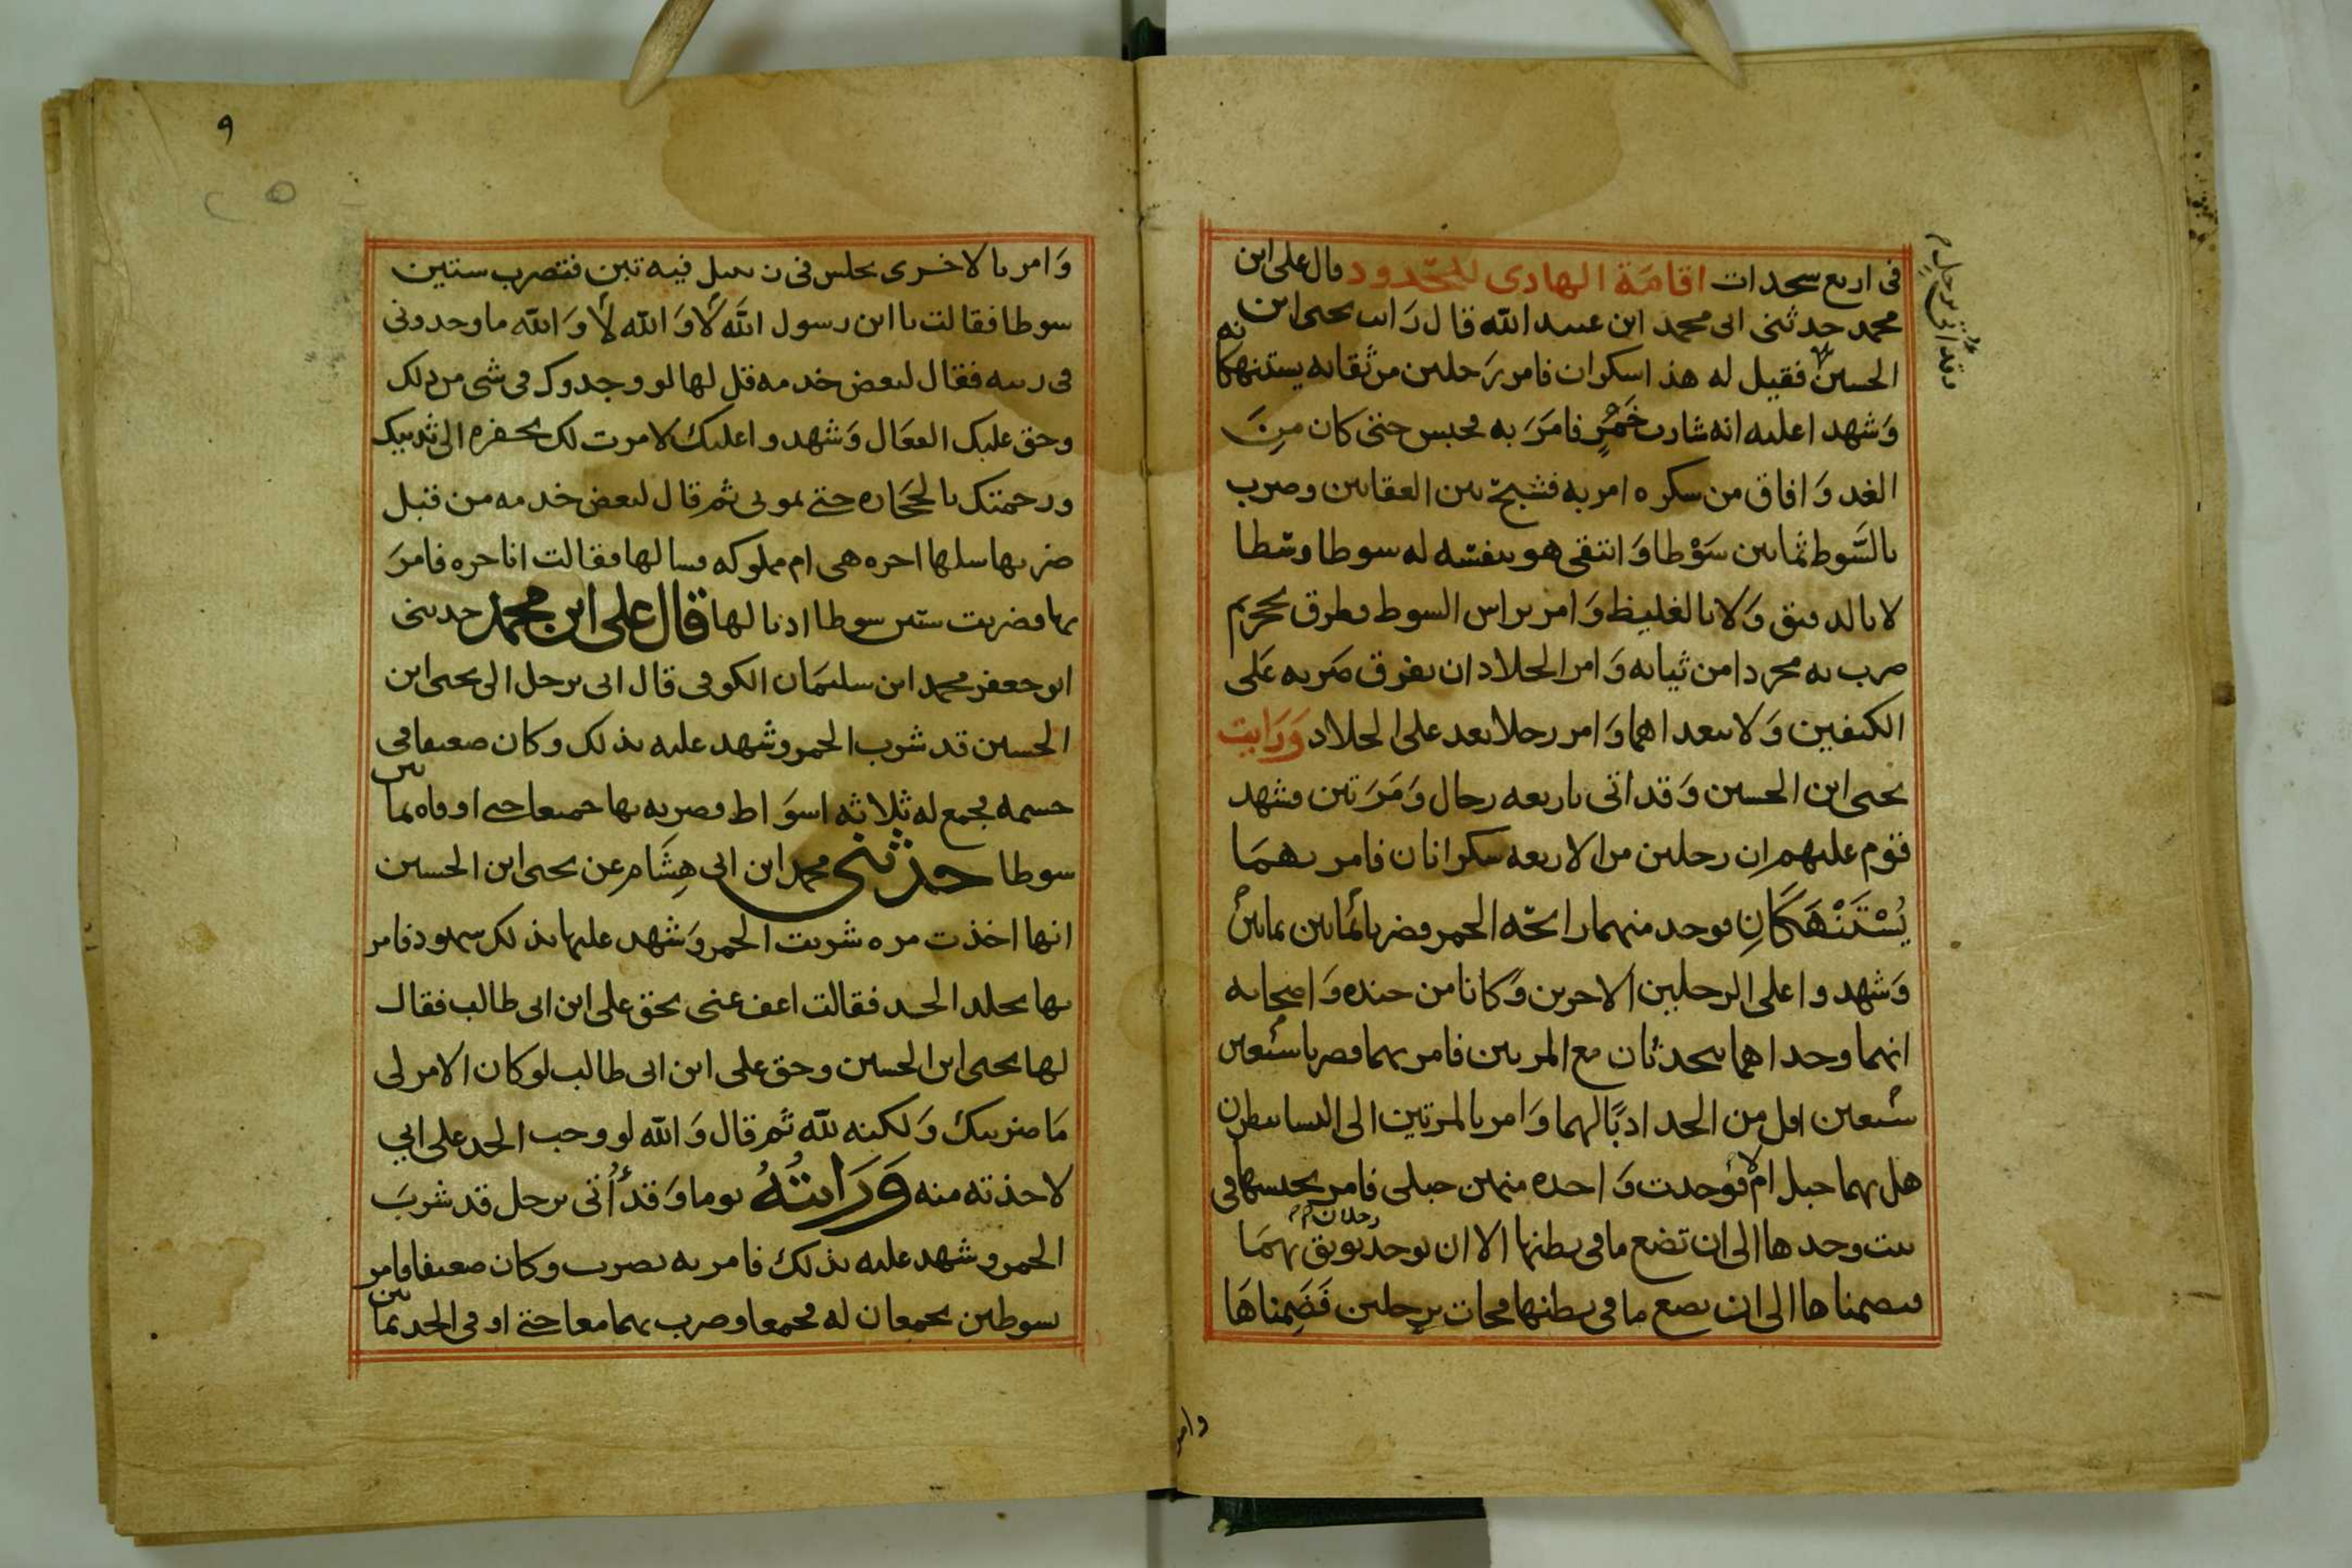 في اربع سجدات اقامة الهادى للحدود قال على ابن
محمد حدثنى ابى محمد ابن عبيد الله قال رايت يحيى ابن
وقد اتى برجل
الحسين فقيل له هذا سكران فامر رجلين من ثقاته يستنهكانه
وشهدا عليه انه شارب خمر فامر به فحبس حتى كان من
الغد وافاق من سكره امر به فشبح بين العقابين وضرب
بالسوط ثمانين سوطا وانتقى هو بنفسه له سوطا وسطا
لا بالدقيق ولا بالغليظ وامر براس السوط فطرق بحجر ثم
ضرب به مجردا من ثيابه وامر الجلاد ان يفرق ضربه على
الكتفين ولا يبعداهما وامر رجلا يعد على الجلاد ورايت
يحيى ابن الحسين وقد اتى باربعه رجال ومرتين فشهد
قوم عليهم ان رجلين من الاربعه سكرانان فامر بهما
يستنهكان فوجد منهما رايحة الخمر فضربا ثمانين ثمانين
وشهدوا على الرجلين الاخرين وكانا من جنده واصحابه
انهما وجداهما يتحدثان مع المرتين فامر بهما فضربا سبعين
سبعين اقل من الحد ادبا لهما وامر بالمرتين الى النسا ينظرن
هل بهما حبل ام لا فوجدت واحده منهن حبلى فامر بحبسها في
بيت وحدها الى ان تضع ما في بطنها الا ان يوجد رجلان يوثق بهما
فيضمناها الى ان تضع ما في بطنها فجات برجلين فضمناها
وامر
٩
وامر بالاخرى تجلس في زنبيل فيه تبن فتضرب ستين
سوطا فقالت يا ابن رسول الله لا والله لا والله ما وجدونى
في ريبه فقال لبعض خدمه قل لها لو وجدوك في شى من ذلك
وحق عليك الفعال وشهدوا عليك لامرت لك بحفره الى ثدييك
ورجمتك بالحجاره حتى تموتى ثم قال لبعض خدمه من قبل
ضربها سلها احره هى ام مملوكه فسالها فقالت انا حره فامر
بها فضربت ستين سوطا ادبا لها قال على ابن محمد حدثنى
ابو جعفر محمد ابن سليمان الكوفى قال اتى برجل الى يحيى ابن
الحسين قد شرب الخمر وشهد عليه بذلك وكان ضعيفا في
جسمه فجمع له ثلاثه اسواط فضربه بها جميعا حتى اوفاه ثمانين
سوطا حدثنى محمد ابن ابى هشام عن يحيى ابن الحسين
انها اخذت مره شربت الخمر وشهد عليها بذلك شهود فامر
بها تجلد الحد فقالت اعف عنى بحق على ابن ابى طالب فقال
لها يحيى ابن الحسين وحق على ابن ابى طالب لو كان الامر لى
ما ضربتك ولكنه لله ثم قال والله لو وجب الحد على ابي
لاخذته منه ورايته يوما وقد اُتى برجل قد شرب
الخمر وشهد عليه بذلك فامر به يضرب وكان ضعيفا فامر
بسوطين يجمعان له فجمعا وضرب بهما معا حتى اوفى الحد ثمانين